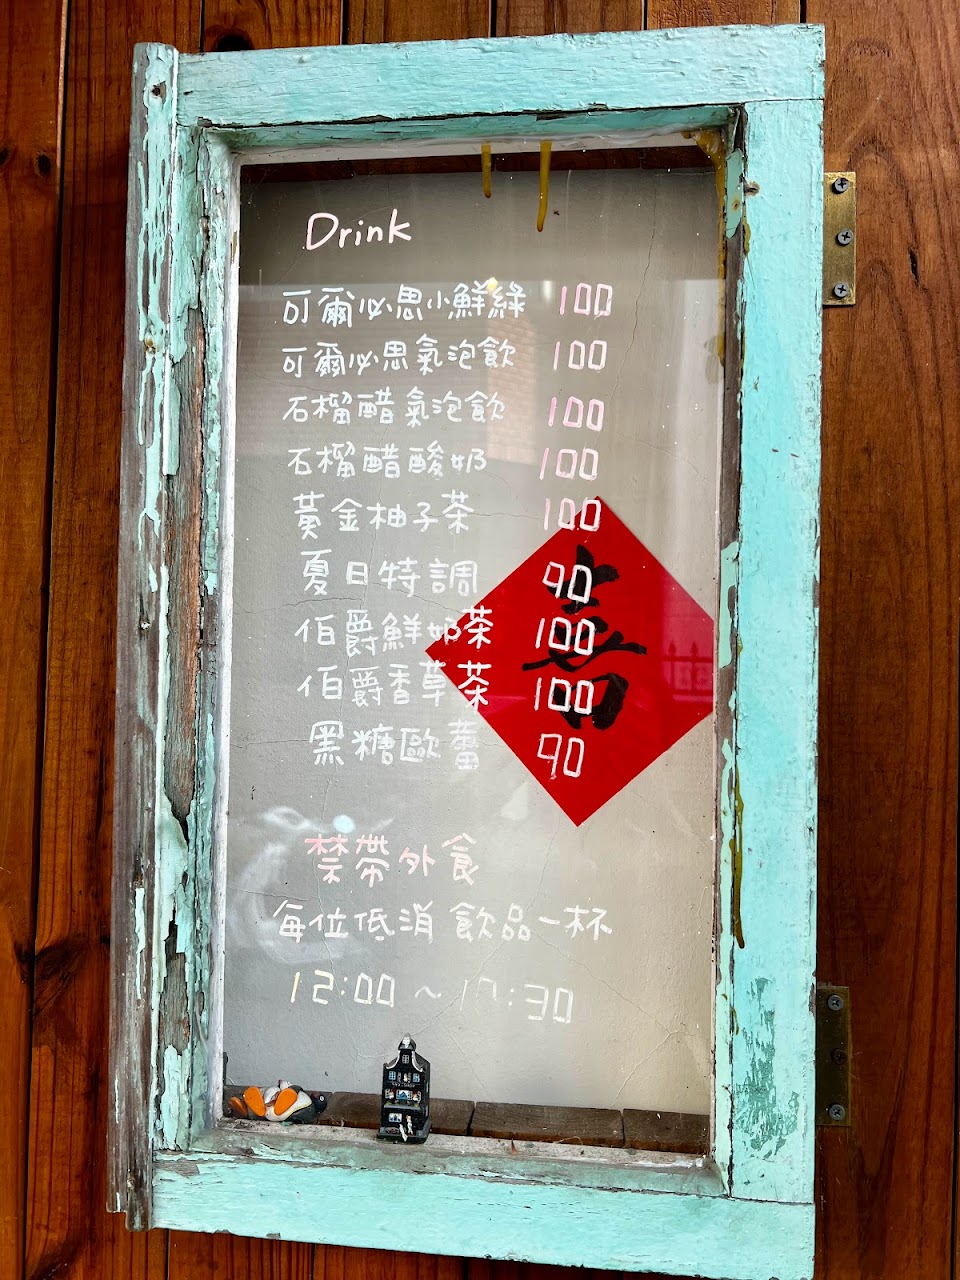 Drink
可爾必思小鮮綠 100
可爾必思氣泡飲 100
石榴醋氣泡飲 100
石榴醋酸奶 100
黃金柚子茶 100
夏日特調 90
伯爵鮮奶茶 100
伯爵香草茶 100
黑糖歐蕾 90
喜
禁帶外食
每位低消 飲品一杯
12:00 ~ 17:30